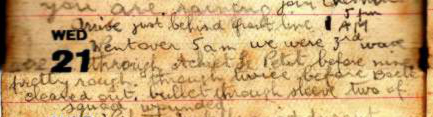 you are raining
Mise just behind front line 1 5 pm
WED Went over 5 am we were 3rd wave
21 through Achiet le Petit before nine
pretty rough through twice before Boche
cleared out. bullet through sleeve two of
squad wounded